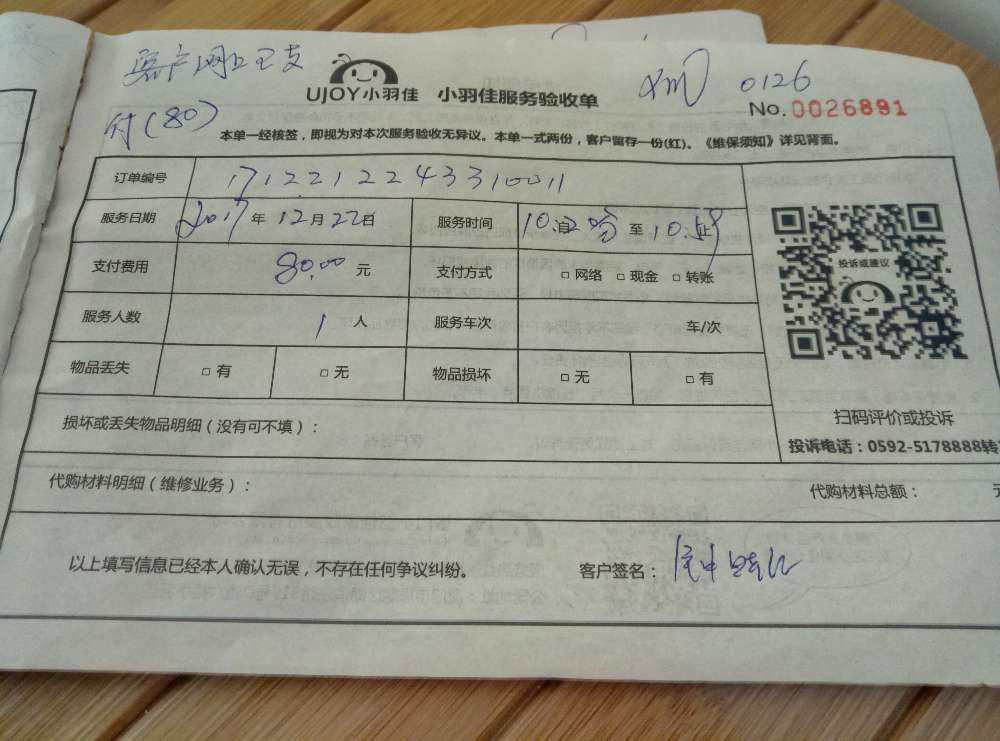 客户网上已支
付(80)
xm 0126
UJOY小羽佳 小羽佳服务验收单
No. 0026891
本单一经核签，即视为对本次服务验收无异议。本单一式两份，客户留存一份(红)。《维保须知》详见背面。
订单编号 1712212243310011
服务日期 2017年12月22日 服务时间 10:自 至 10:止
支付费用 80.00元 支付方式 □ 网络 □ 现金 □ 转账
投诉或建议
服务人数 1人 服务车次 车/次
物品丢失 □ 有 □ 无 物品损坏 □ 无 □ 有
扫码评价或投诉
损坏或丢失物品明细（没有可不填）：
投诉电话：0592-5178888转
代购材料明细（维修业务）： 代购材料总额：
以上填写信息已经本人确认无误，不存在任何争议纠纷。 客户签名：